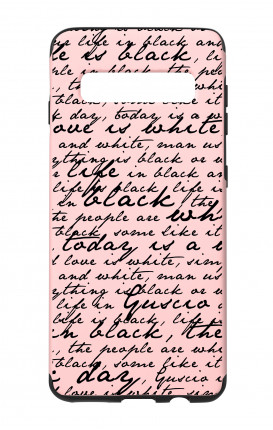 life in black and
e is black, li
ple in black, the peo
black, some like it
k day, today is a w
ove is white
and white, man us
ything is black or w
life in black and
life is black, life is
en black, the
he people are wh
black, some like it
, today is a u
s love is white, sim
and white, man us
ything is black or w
life in Guscio
life is black, life is
n black, the
, the people are whi
black, some like it
k day, Guscio is
love is white, sim